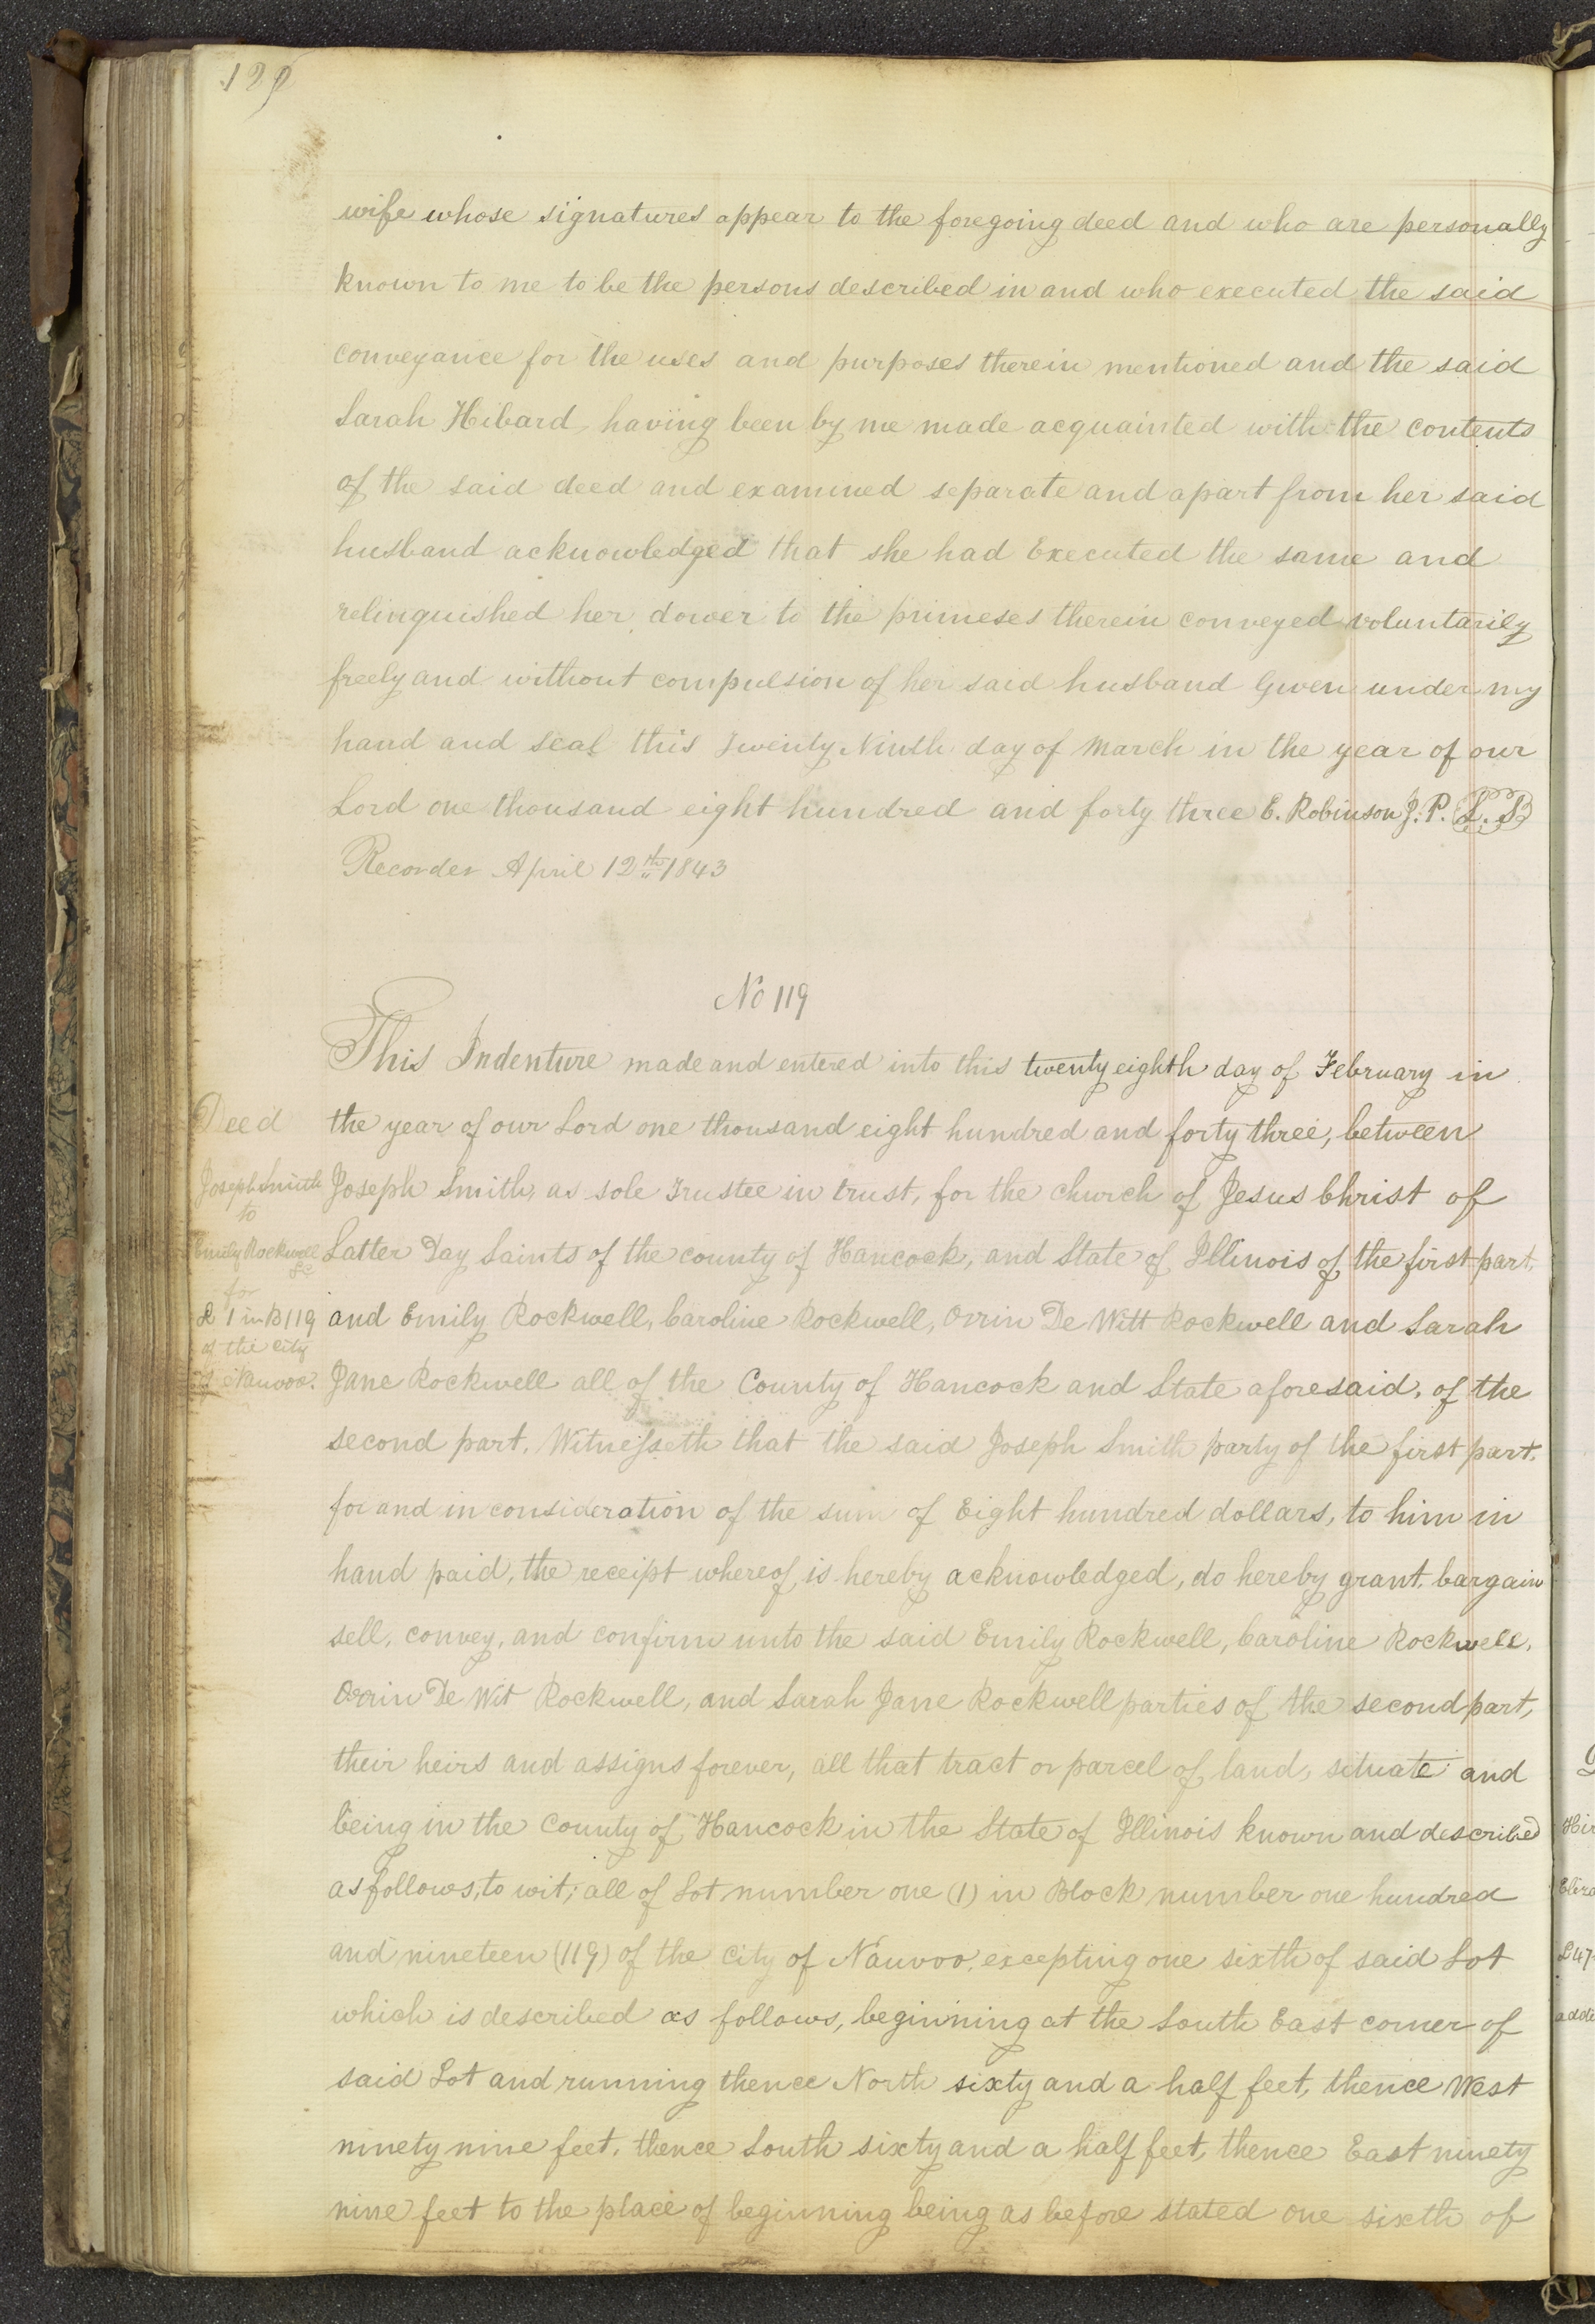 129
wife whose signatures appear to the foregoing deed and who are personally
known to me to be the persons described in and who executed the said
conveyance for the uses and purposes therein mentioned and the said
Sarah Hibard, having been by me made acquainted with the contents
of the said deed and examined separate and apart from her said
husband acknowledged that she had Executed the same and
relinquished her dower to the primeses therein conveyed voluntarily
freely and without compulsion of her said husband Given under my
hand and seal this Twenty Ninth day of March in the year of our
Lord one thousand eight hundred and forty three E. Robinson J. P. L. S
Recorder April 12th 1843
No 119
This Indenture made and entered into this twenty eighth day of February in
Deed
the year of our Lord one thousand eight hundred and forty three, between
Joseph Smith
Joseph Smith, as sole Trustee in trust, for the church of Jesus Christ of
to
Emily Rockwell
&c
Latter Day Saints of the county of Hancock, and State of Illinois of the first part,
for
L 1 in B 119
and Emily Rockwell, Caroline Rockwell, Orrin De Witt Rockwell and Sarah
of the city
of Nauvoo.
Jane Rockwell all of the County of Hancock and State aforesaid, of the
second part. Witnesseth that the said Joseph Smith party of the first part,
for and in consideration of the sum of Eight hundred dollars, to him in
hand paid, the receipt whereof, is hereby acknowledged, do hereby grant, bargain
sell, convey, and confirm unto the said Emily Rockwell, Caroline Rockwell,
Orrin De Wit Rockwell, and Sarah Jane Rockwell parties of the second part,
their heirs and assigns forever, all that tract or parcel of land, situate and
being in the County of Hancock in the State of Illinois known and described
as follows, to wit; all of Lot number one (1) in Block number one hundred
and nineteen (119) of the City of Nauvoo, excepting one sixth of said Lot
which is described as follows, beginning at the South East corner of
said Lot and running thence North sixty and a half feet, thence West
ninety nine feet, thence South sixty and a half feet, thence East ninety
nine feet to the place of beginning being as before stated one sixth of